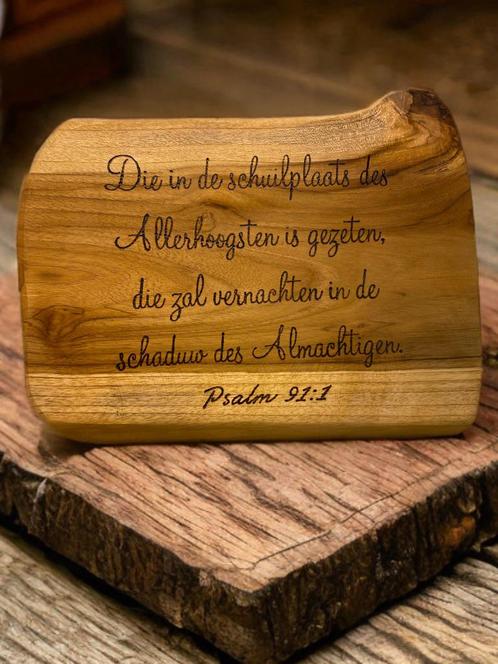 Die in de schuilplaats des
Allerhoogsten is gezeten,
die zal vernachten in de
schaduw des Almachtigen.
Psalm 91:1